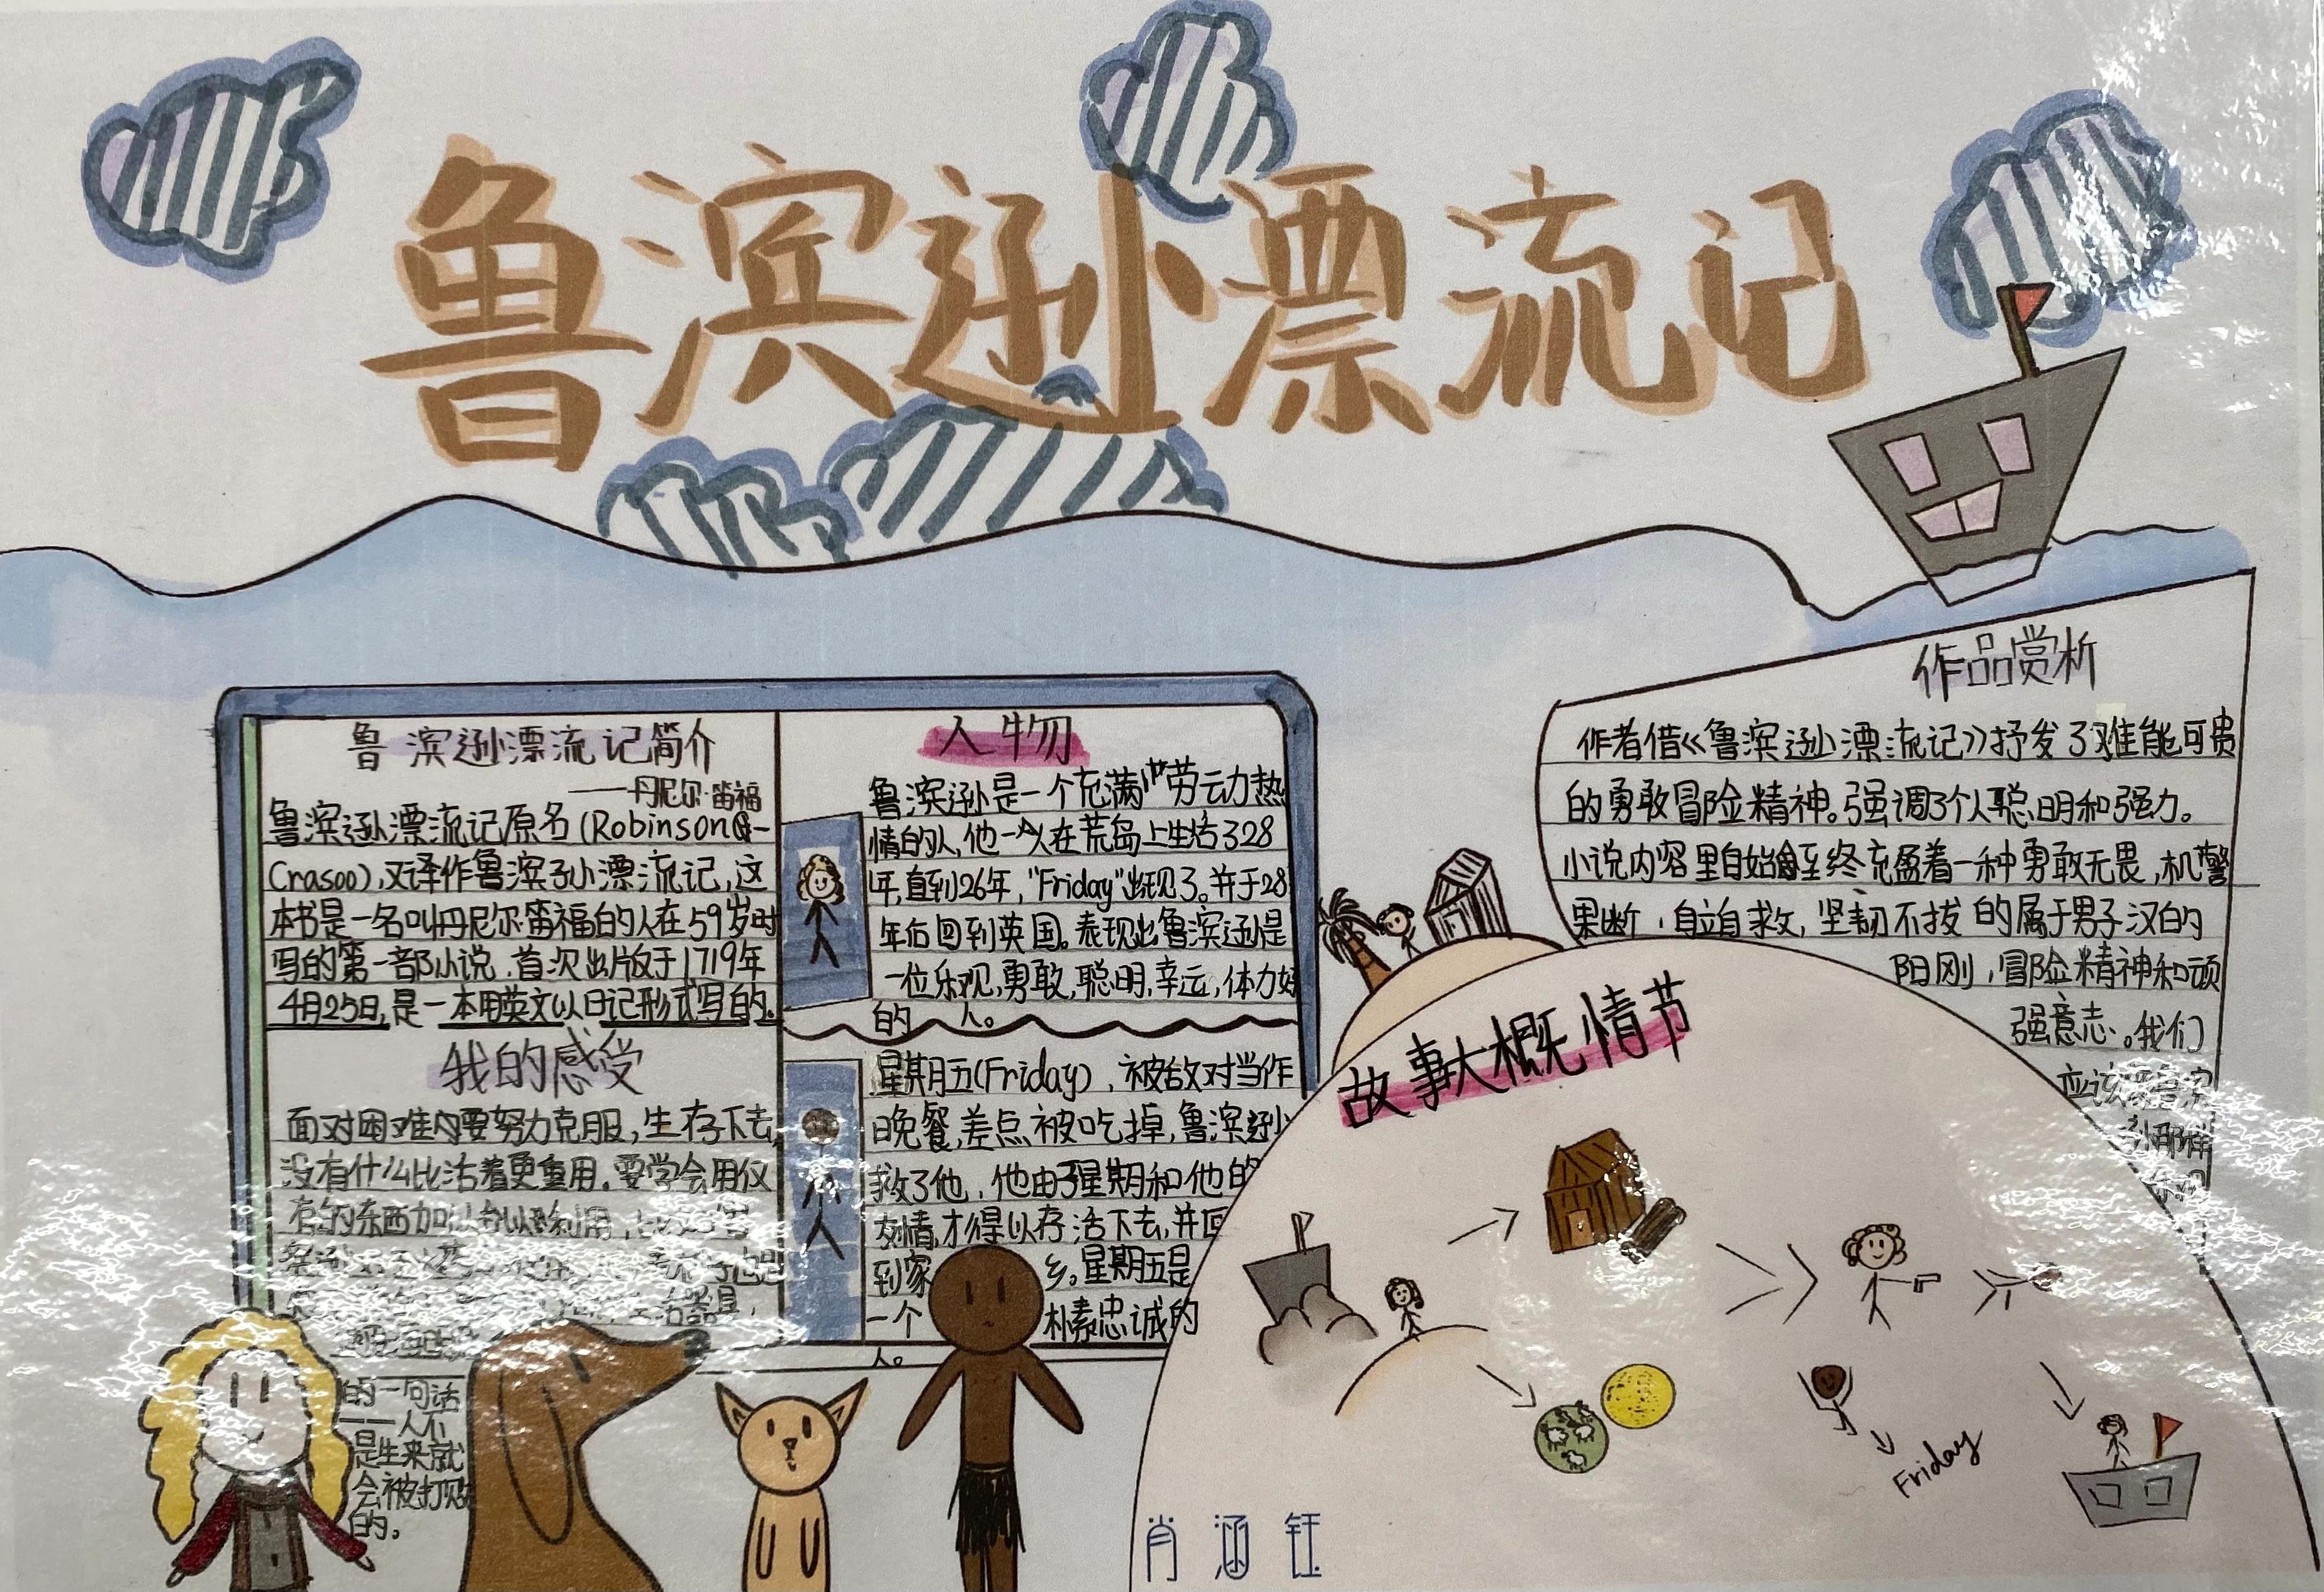 鲁滨逊漂流记
鲁滨逊漂流记简介
——丹尼尔·笛福
鲁滨逊漂流记原名(Robinson
Crasoo),又译作鲁滨孙漂流记,这
本书是一名叫丹尼尔·笛福的人在59岁时
写的第一部小说.首次出版于1719年
4月25日,是一本用英文以日记形式写的.
我的感受
面对困难要努力克服,生存下去,
没有什么比活着更重用.要学会用仅
有的东西加以利用,
的一句话
——人不
是生来就
会被打败
的。
人物
鲁滨逊是一个充满"劳动力热
情的人,他一人在荒岛上生活328
年,直到26年,"Friday"出现了。并于28
年后回到英国。表现出鲁滨逊是
一位乐观,勇敢,聪明,幸运,体力好
的人。
星期五(Friday),被敌对当作
晚餐,差点被吃掉,鲁滨逊
救了他,他由于星期和他的
友情,才得以存活下去,并回
到家乡。星期五是
一个朴素忠诚的
人。
作品赏析
作者借《鲁滨逊漂流记》抒发了难能可贵
的勇敢冒险精神。强调了个人聪明和强力。
小说内容里自始至终充盈着一种勇敢无畏,机警
果断,自立自救,坚韧不拔的属于男子汉的
阳刚,冒险精神和顽
强意志。我们
应该
那样
故事大概情节
Friday
肖涵钰